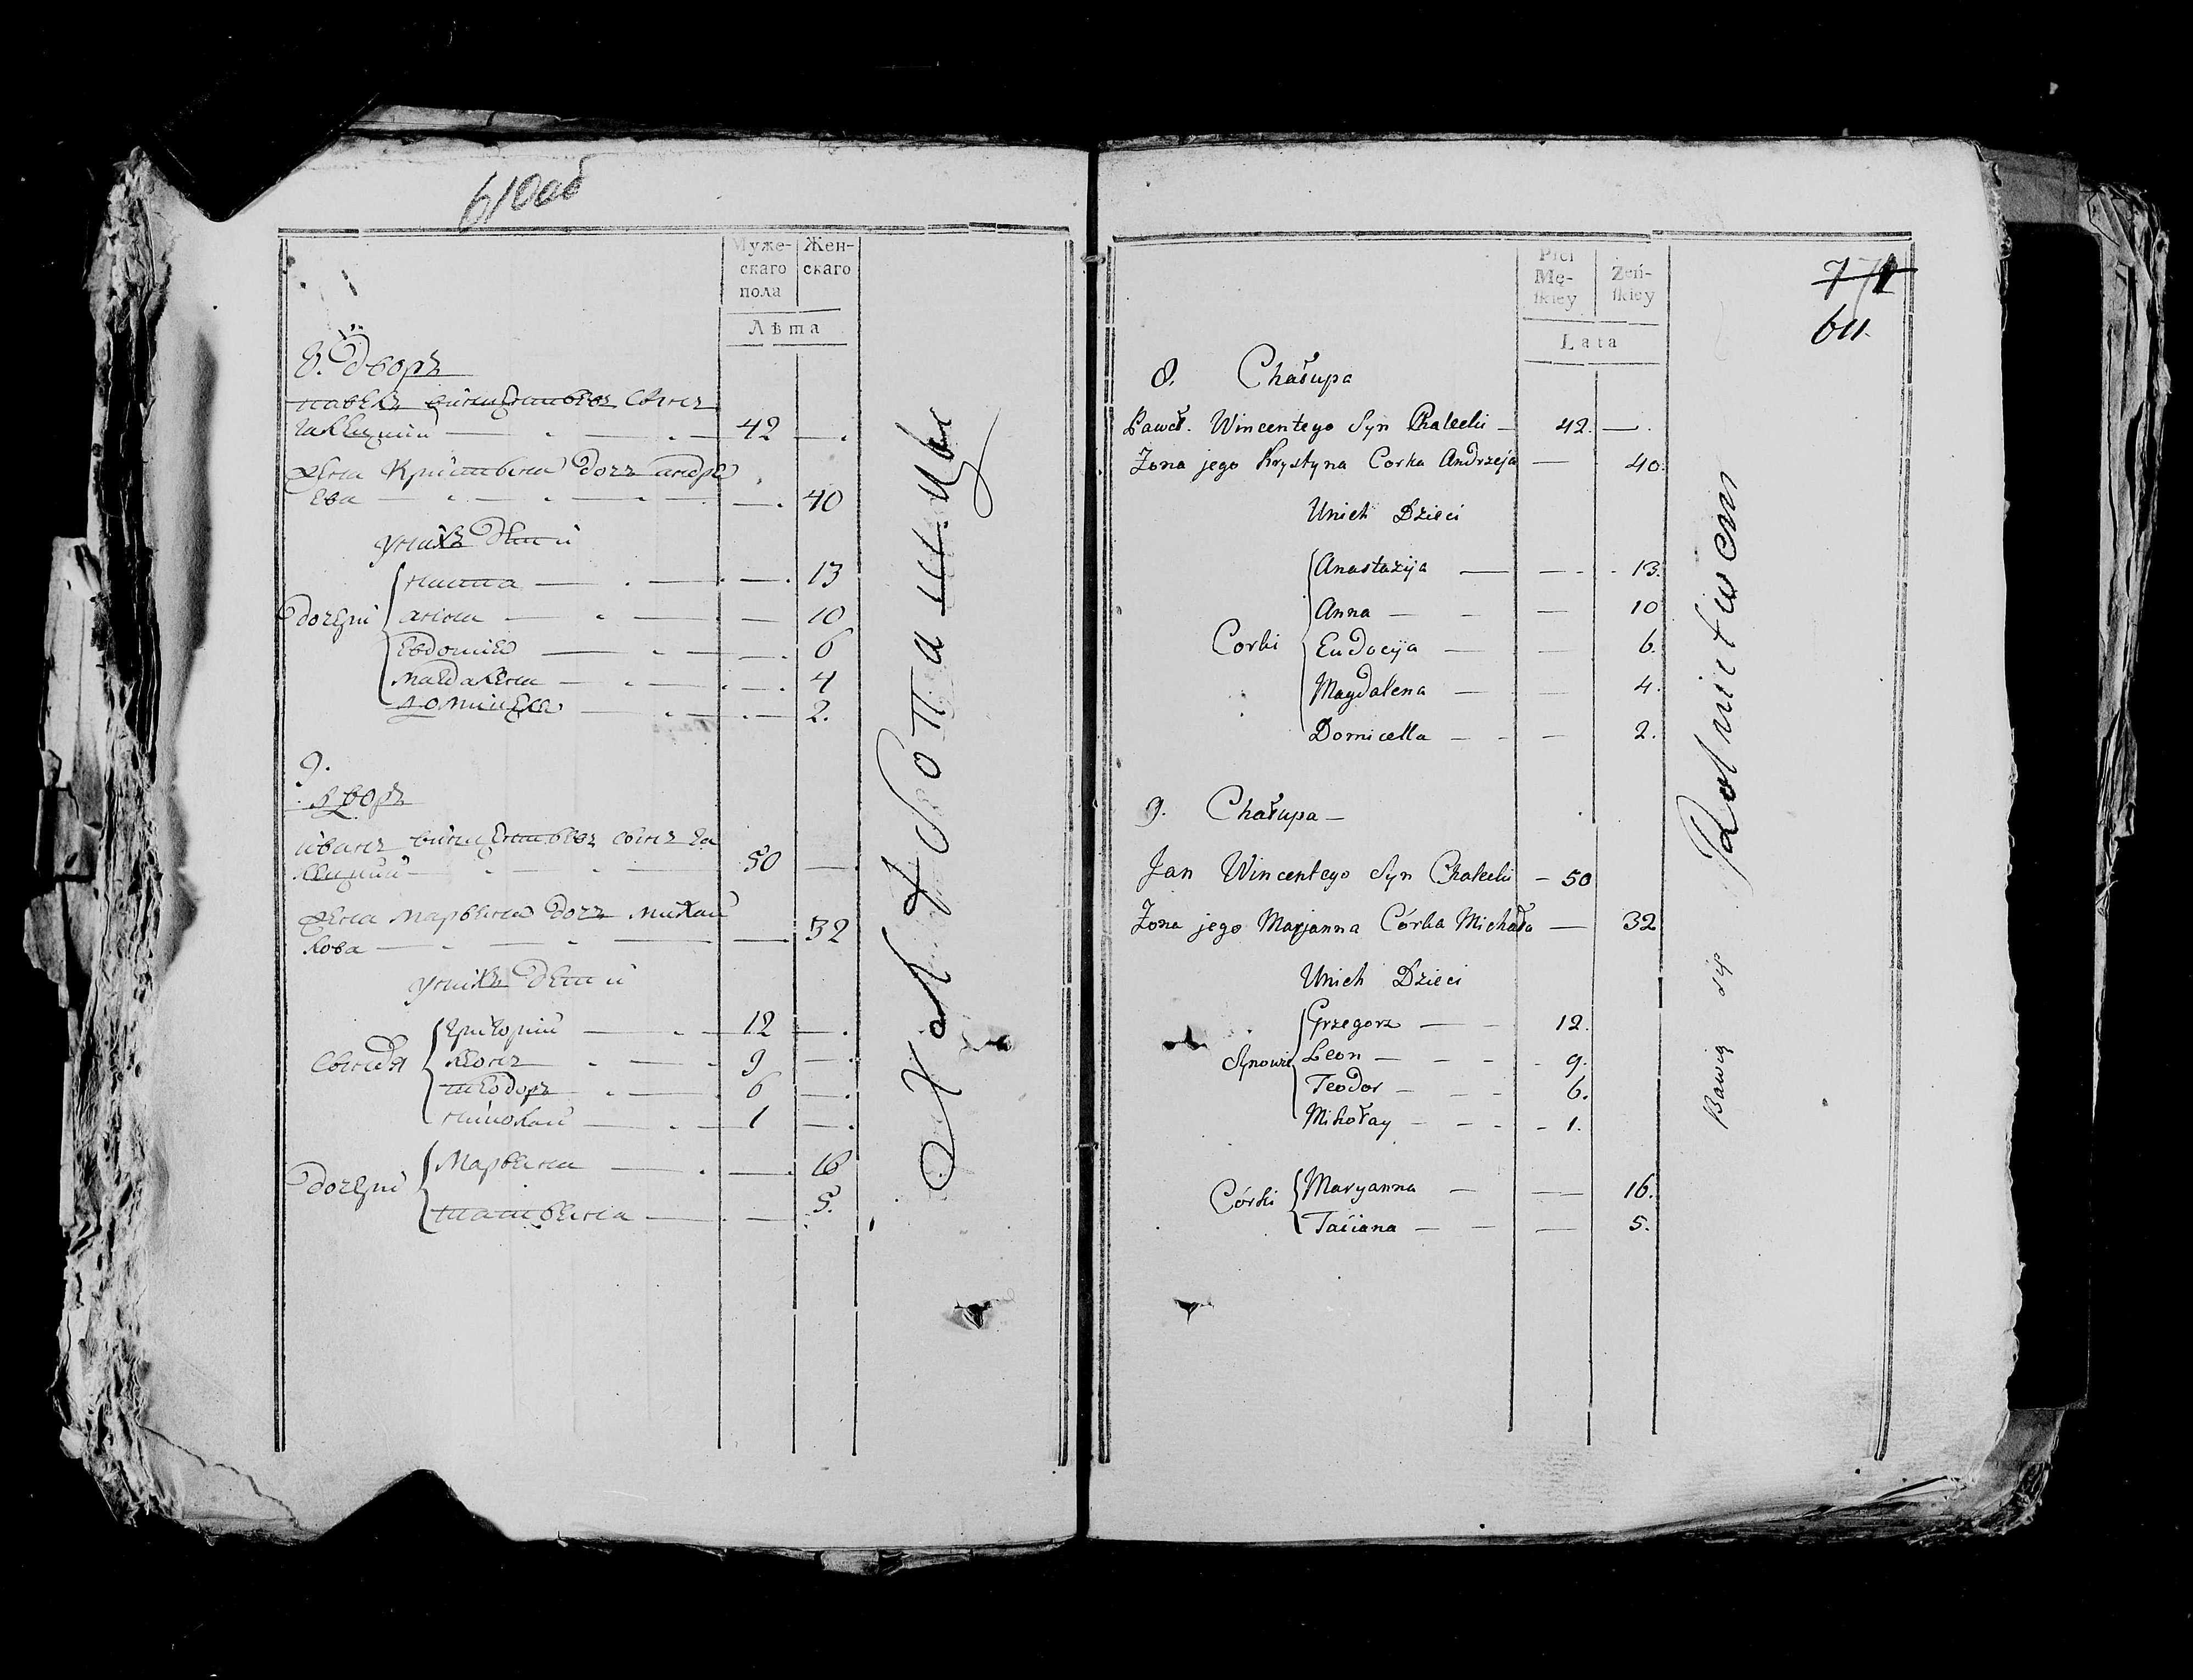 610об
Муже-
скаго
пола
Жен-
скаго
Лѣта
8. дворъ
павелъ винцентьевъ сынъ
галецкий 42
жена Кристына дочь андре
ева 40
унихъ дети
дочери
наста 13
анна 10
Евдокия 6
магдалена 4
доминеля 2.
9.
дворъ
иванъ винцентьевъ сынъ га
лецкий 50
жена марьяна дочь михай
лова 32
унихъ дети
сыновья
григорий 12
леонъ 9
теодоръ 6
николай 1
дочери
Марьяна 16
татьяна 5.
хлебопашцы
Płci
Mę-
ſkiey
Żeń-
ſkiey
Lata
611.
8. Chałupa
Paweł. Wincentego Syn Chalecki 42.
Żona jego Krystyna Corka Andrzeja 40.
Unich Dzieci
Corki
Anastazija 13.
Anna 10
Eudocija 6.
Magdalena 4.
Domicella 2.
9. Chałupa
Jan Wincentego Syn Chalecki 50
Żona jego Marjanna Córka Michała 32
Unich Dzieci
Synowie
Grzegorz 12.
Leon 9.
Teodor 6.
Mikołay 1.
Córki
Maryanna 16.
Taciana 5.
Bawią się Rolnictwem